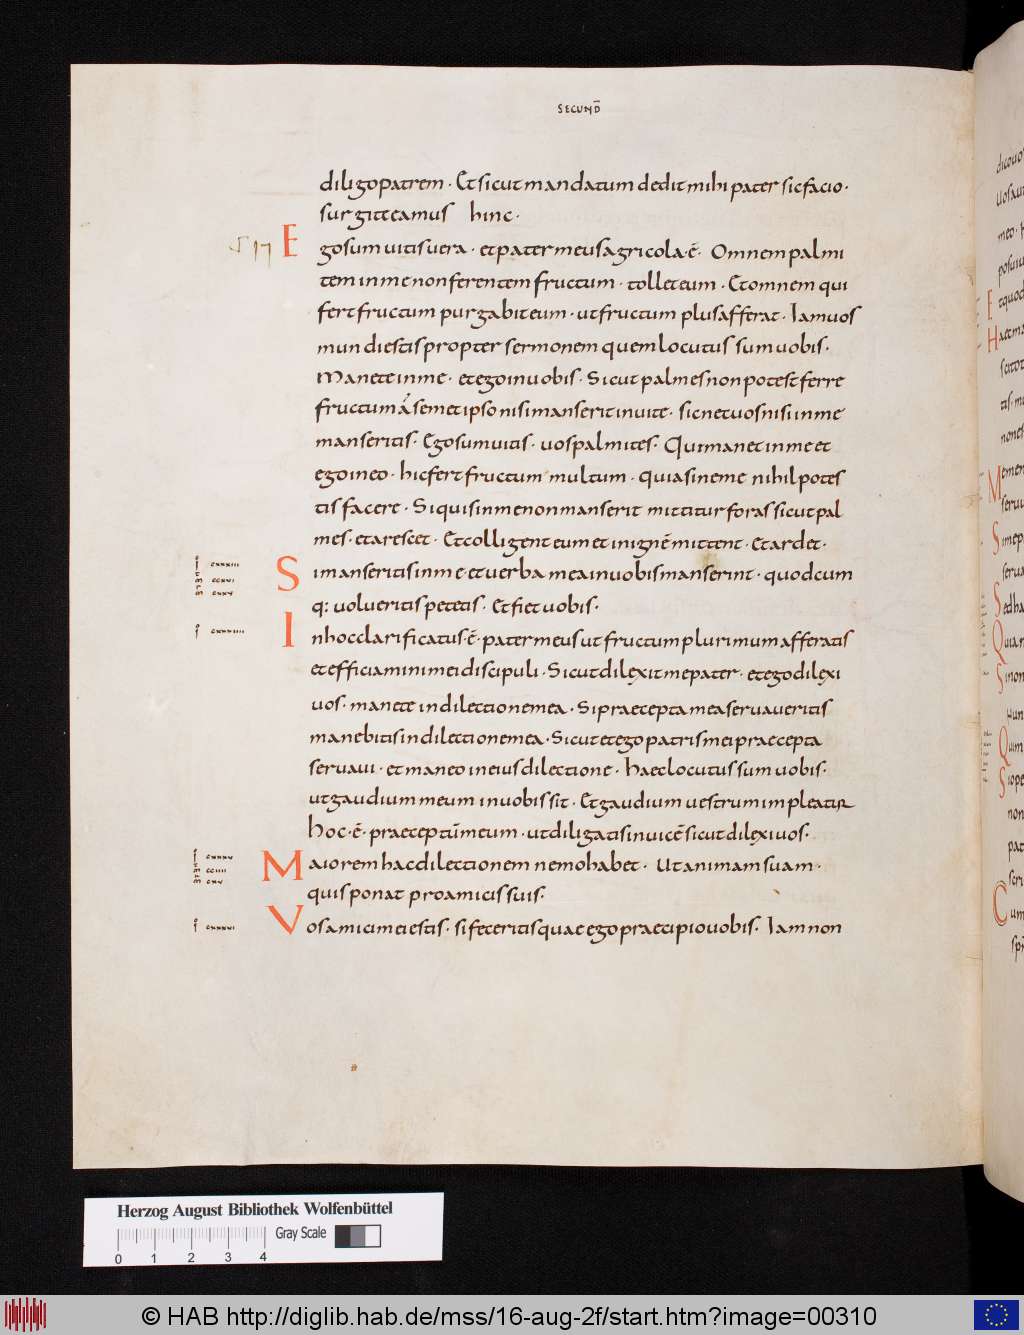 SECUND̄
diligo patrem · Et sicut mandatum dedit mihi pater sic facio ·
surgite eamus hinc ·
Ego sum uitis uera · et pater meus agricola · ē · Omnem palmi
tem in me non ferentem fructum · tollet eum · Et omnem qui
fert fructum purgabit eum · ut fructum plus afferat · Iam uos
mundi estis propter sermonem quem locutus sum uobis ·
Manete in me · et ego in uobis · Sicut palmes non potest ferre
fructum a semet ipso nisi manserit in uite · sic net uos nisi in me
manseritis · Ego sum uitis · uos palmites · Qui manet in me et
ego in eo · hic fert fructum multum · quia sine me nihil potes
tis facere · Si quis in me non manserit mittitur foras sicut pal
mes · et arescet · Et colligent eum et in ignē mittent · Et ardet ·
Si manseritis in me · et uerba mea in uobis manserint · quodcum
q: uolueritis petetis · Et fiet uobis ·
In hoc clarificatus · ē · pater meus ut fructum plurimum afferatis
et efficiamini mei discipuli · Sicut dilexit me pater · et ego dilexi
uos · manete in dilectione mea · Si praecepta mea seruaueritis
manebitis in dilectione mea · Sicut et ego patris mei praecepta
seruaui · et maneo in eius dilectione · haec locutus sum uobis ·
ut gaudium meum in uobis sit · Et gaudium uestrum impleatur
Hoc · ē · praeceptū meum · ut diligatis inuicē sicut dilexi uos ·
Maiorem hac dilectionem nemo habet · Ut animam suam ·
quis ponat pro amicis suis ·
Vos amici mei estis · si feceritis quae ego praecipio uobis · Iam non
Herzog August Bibliothek Wolfenbüttel
Gray Scale
0 1 2 3 4
© HAB http://diglib.hab.de/mss/16-aug-2f/start.htm?image=00310